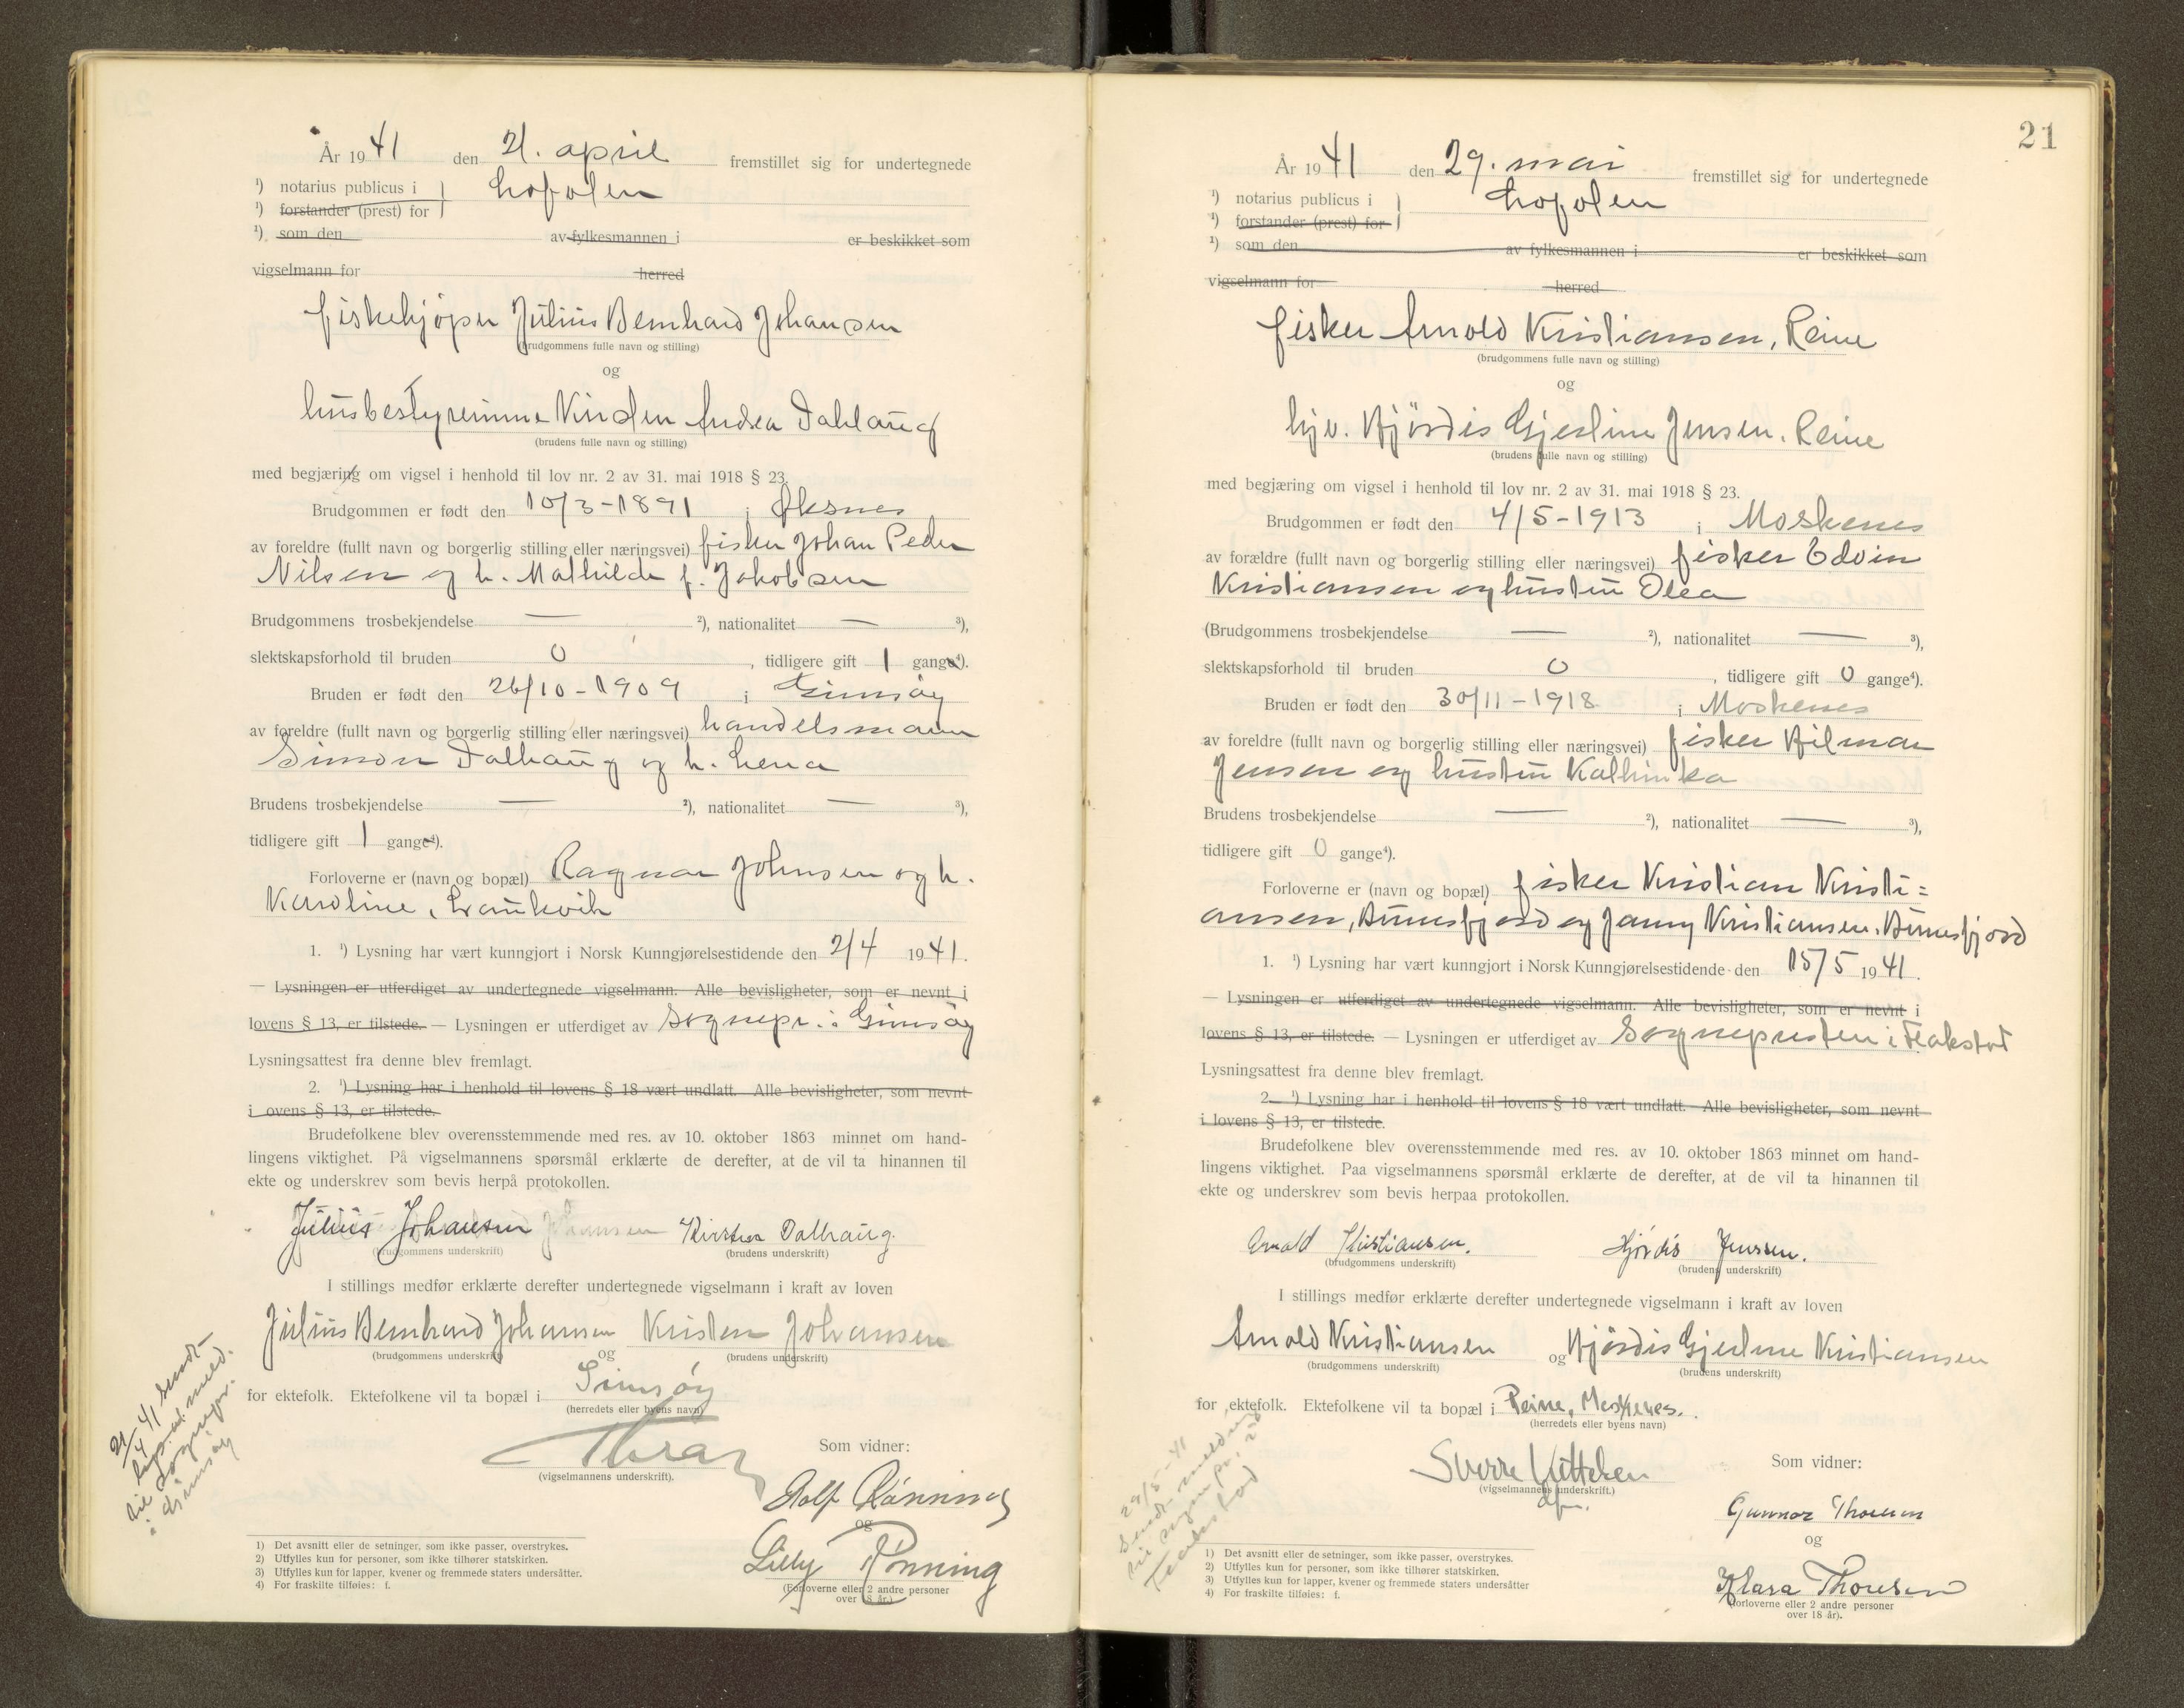 År 1941 den 21. april fremstillet sig for undertegnede
¹) notarius publicus i Lofoten
¹) forstander (prest) for
¹) som den av fylkesmannen i er beskikket som
vigselmann for herred
fiskekjøper Julius Bernhard Johansen
(brudgommens fulle navn og stilling)
og
husbestyrerinne Kirsten Andrea Dalhaug
(brudens fulle navn og stilling)
med begjæring om vigsel i henhold til lov nr. 2 av 31. mai 1918 § 23.
Brudgommen er født den 10/3-1891 i Øksnes
av foreldre (fullt navn og borgerlig stilling eller næringsvei) fisker Johan Peder
Nilsen og h. Mathilde f. Jakobsen
Brudgommens trosbekjendelse — ²), nationalitet — ³),
slektskapsforhold til bruden 0, tidligere gift 1 gange⁴).
Bruden er født den 26/10-1909 i Gimsøy
av foreldre (fullt navn og borgerlig stilling eller næringsvei) handelsmann
Simon Dalhaug og h. Lena
Brudens trosbekjendelse — ²), nationalitet — ³),
tidligere gift 1 gange⁴).
Forloverne er (navn og bopæl) Ragnar Johnsen og h.
Karoline, Laukvik
1. ¹) Lysning har vært kunngjort i Norsk Kunngjørelsestidende den 2/4 1941.
— Lysningen er utferdiget av undertegnede vigselmann. Alle bevisligheter, som er nevnt i
lovens § 13, er tilstede. — Lysningen er utferdiget av sognepr. i Gimsøy
Lysningsattest fra denne blev fremlagt.
2. ¹) Lysning har i henhold til lovens § 18 vært undlatt. Alle bevisligheter, som nevnt
i ovens § 13, er tilstede.
Brudefolkene blev overensstemmende med res. av 10. oktober 1863 minnet om hand-
lingens viktighet. På vigselmannens spørsmål erklærte de derefter, at de vil ta hinannen til
ekte og underskrev som bevis herpå protokollen.
Julius Johansen Kirsten Dalhaug.
(brudgommens underskrift) (brudens underskrift)
I stillings medfør erklærte derefter undertegnede vigselmann i kraft av loven
Julius Bernhard Johansen og Kirsten Johansen
(brudgommens underskrift) (brudens underskrift)
for ektefolk. Ektefolkene vil ta bopæl i Gimsøy
(herredets eller byens navn)
(vigselmannens underskrift).
Som vidner:
Rolf Rønning
og
Lilly Rønning
(Forloverne eller 2 andre personer
over 18 år.)
21/4 41 sendt
vigselmeld.
til sognepr.
i Gimsøy
1) Det avsnitt eller de setninger, som ikke passer, overstrykes.
2) Utfylles kun for personer, som ikke tilhører statskirken.
3) Utfylles kun for lapper, kvener og fremmede staters undersåtter.
4) For fraskilte tilføies: f.
21
År 1941 den 29. mai fremstillet sig for undertegnede
¹) notarius publicus i Lofoten
¹) forstander (prest) for
¹) som den av fylkesmannen i er beskikket som
vigselmann for herred
fisker Arnold Kristiansen, Reine
(brudgommens fulle navn og stilling)
og
hjv. Hjördis Gjertine Jensen, Reine
(brudens fulle navn og stilling)
med begjæring om vigsel i henhold til lov nr. 2 av 31. mai 1918 § 23.
Brudgommen er født den 4/5-1913 i Moskenes
av forældre (fullt navn og borgerlig stilling eller næringsvei) fisker Edvin
Kristiansen og hustru Olea
(Brudgommens trosbekjendelse — ²), nationalitet — ³),
slektskapsforhold til bruden 0, tidligere gift 0 gange⁴).
Bruden er født den 30/11-1918 i Moskenes
av foreldre (fullt navn og borgerlig stilling eller næringsvei) fisker Hilmar
Jensen og hustru Kathinka
Brudens trosbekjendelse — ²), nationalitet — ³),
tidligere gift 0 gange⁴).
Forloverne er (navn og bopæl) fisker Kristian Kristi=
ansen, Bunesfjord og Jenny Kristiansen, Bunesfjord
1. ¹) Lysning har vært kunngjort i Norsk Kunngjørelsestidende den 15/5 1941.
— Lysningen er utferdiget av undertegnede vigselmann. Alle bevisligheter, som er nevnt i
lovens § 13, er tilstede. — Lysningen er utferdiget av Sognepresten i Flakstad
Lysningsattest fra denne blev fremlagt.
2. ¹) Lysning har i henhold til lovens § 18 vært undlatt. Alle bevisligheter, som nevnt
i lovens § 13, er tilstede.
Brudefolkene blev overensstemmende med res. av 10. oktober 1863 minnet om hand-
lingens viktighet. Paa vigselmannens spørsmål erklærte de derefter, at de vil ta hinannen til
ekte og underskrev som bevis herpaa protokollen.
Arnold Kristiansen. Hjørdis Jenssen.
(brudgommens underskrift) (brudens underskrift)
I stillings medfør erklærte derefter undertegnede vigselmann i kraft av loven
Arnold Kristiansen og Hjördis Gjertine Kristiansen
(brudgommens underskrift) (brudens underskrift)
for ektefolk. Ektefolkene vil ta bopæl i Reine, Moskenes.
(herredets eller byens navn)
Sverre
(vigselmannens underskrift.)
Som vidner:
Gunnar Thoresen
og
Klara Thoresen
(forloverne eller 2 andre personer
over 18 år).
29/5-41
sendt melding
til sognepr. i
Flakstad
1) Det avsnitt eller de setninger, som ikke passer, overstrykes.
2) Utfylles kun for personer, som ikke tilhører statskirken.
3) Utfylles kun for lapper, kvener og fremmede staters undersåtter
4) For fraskilte tilføies: f.